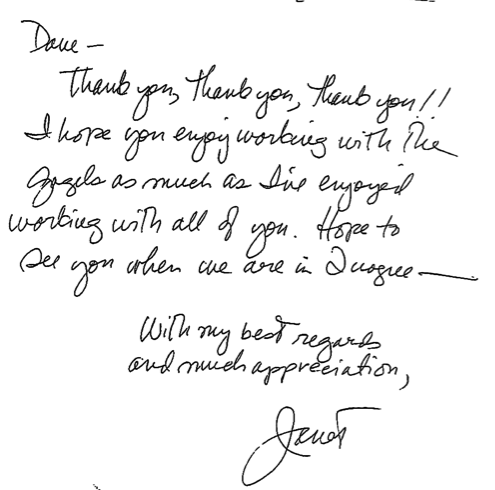 Dave —
Thank you, Thank you, Thank you!!
I hope you enjoy working with the
as much as I've enjoyed
working with all of you. Hope to
see you when we are in
With my best regards
and much appreciation,
Janet